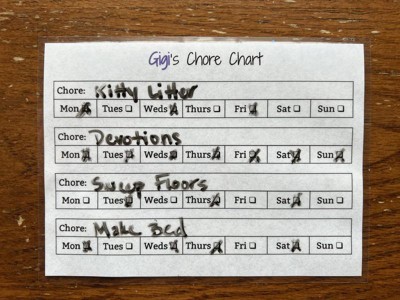 Gigi's Chore Chart
Chore: Kitty Litter
Mon Tues Weds Thurs Fri Sat Sun
Chore: Devotions
Mon Tues Weds Thurs Fri Sat Sun
Chore: Sweep Floors
Mon Tues Weds Thurs Fri Sat Sun
Chore: Make Bed
Mon Tues Weds Thurs Fri Sat Sun